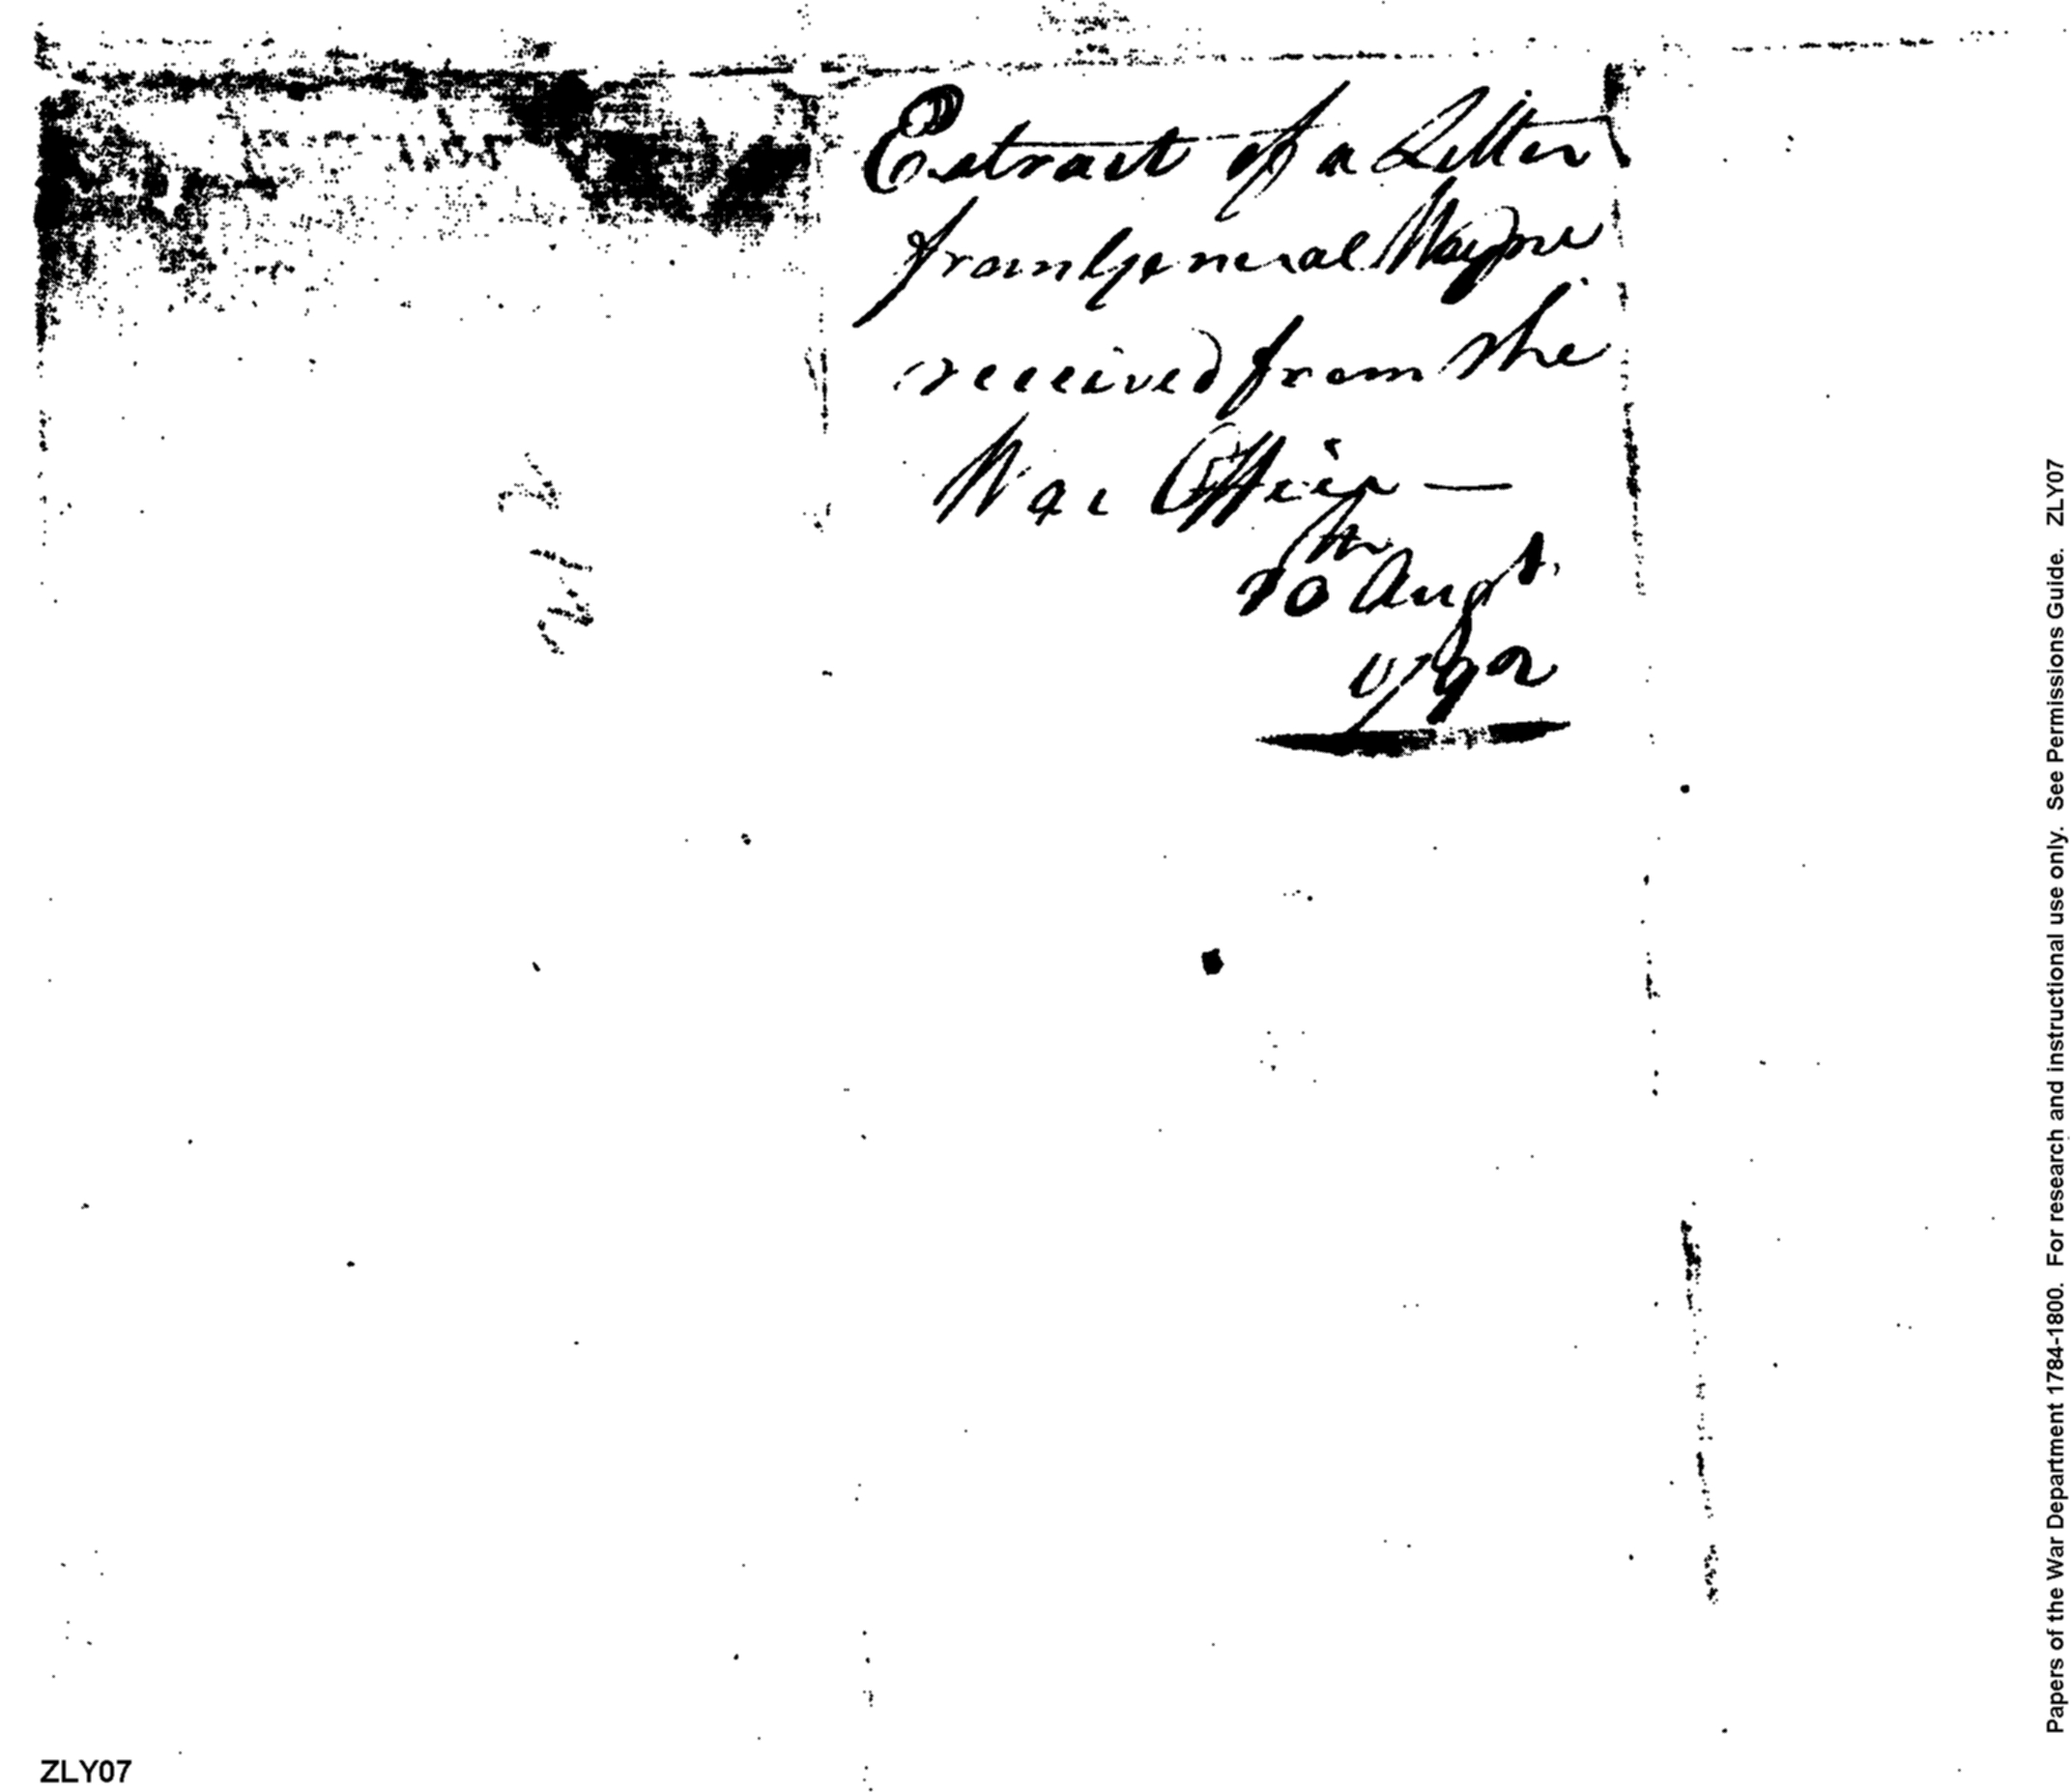 Extract of a Letter
from General Wayne
received from the
War Office —
10 Augt.
1792
Papers of the War Department 1784-1800. For research and instructional use only. See Permissions Guide. ZLY07
ZLY07